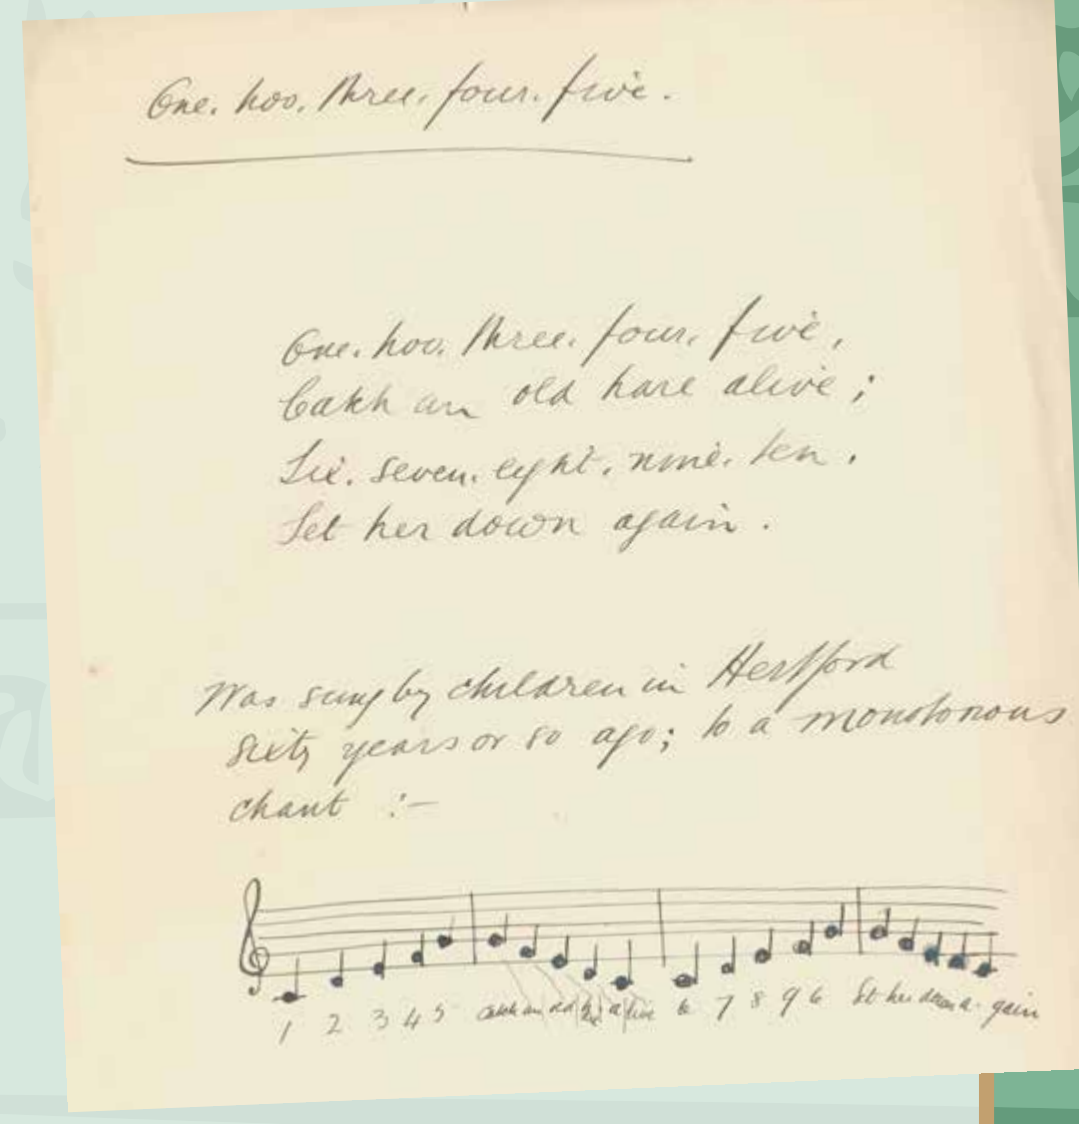 One. two. three. four. five.
One. two. three. four. five,
Catch an old hare alive;
Six. seven. eight. nine. ten.
Let her down again.
Was sung by children in Hertford
sixty years or so ago; to a monotonous
chant :—
1 2 3 4 5 Catch an old hare a live 6 7 8 9 6 Let her down a- gain